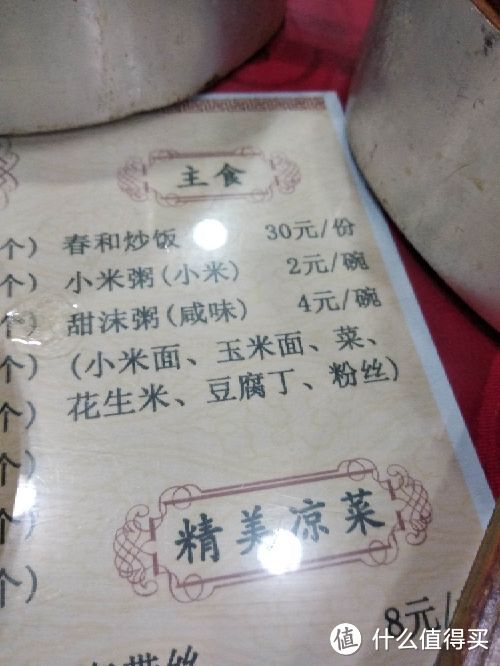 主食
个） 春和炒饭 30元/份
个） 小米粥(小米) 2元/碗
个） 甜沫粥(咸味) 4元/碗
个） (小米面、玉米面、菜、
个） 花生米、豆腐丁、粉丝)
个）
个）
精美凉菜
个）
8元/
值 什么值得买